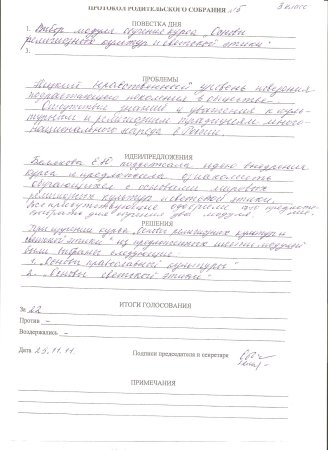 3 класс
ПРОТОКОЛ РОДИТЕЛЬСКОГО СОБРАНИЯ 15
ПОВЕСТКА ДНЯ
1. Выбор модуля изучение курса „Основы
2. религиозных культур и светской этики"
3.
ПРОБЛЕМЫ
Низкий нравственный уровень поведения
подрастающего поколения в обществе.
Отсутствие знаний и уважения к культурным и религиозным традициям много-
национального народа в России
ИДЕИ/ПРЕДЛОЖЕНИЯ
Е.Н. поддержала идею внедрения
курса и предложила ознакомить
обучающихся с основами мировых
религиозных культур и светской этики.
Все присутствующие одобрили
выбрать для изучения два модуля.
РЕШЕНИЯ
При изучении курса „Основы религиозных культур и
светской этики" из предложенных шести модулей
были выбраны следующие
1. „Основы православной культуры"
2. „Основы светской этики"
ИТОГИ ГОЛОСОВАНИЯ
За 22
Против –
Воздержались –
Дата 25.11.11. Подписи председателя и секретаря
ПРИМЕЧАНИЯ